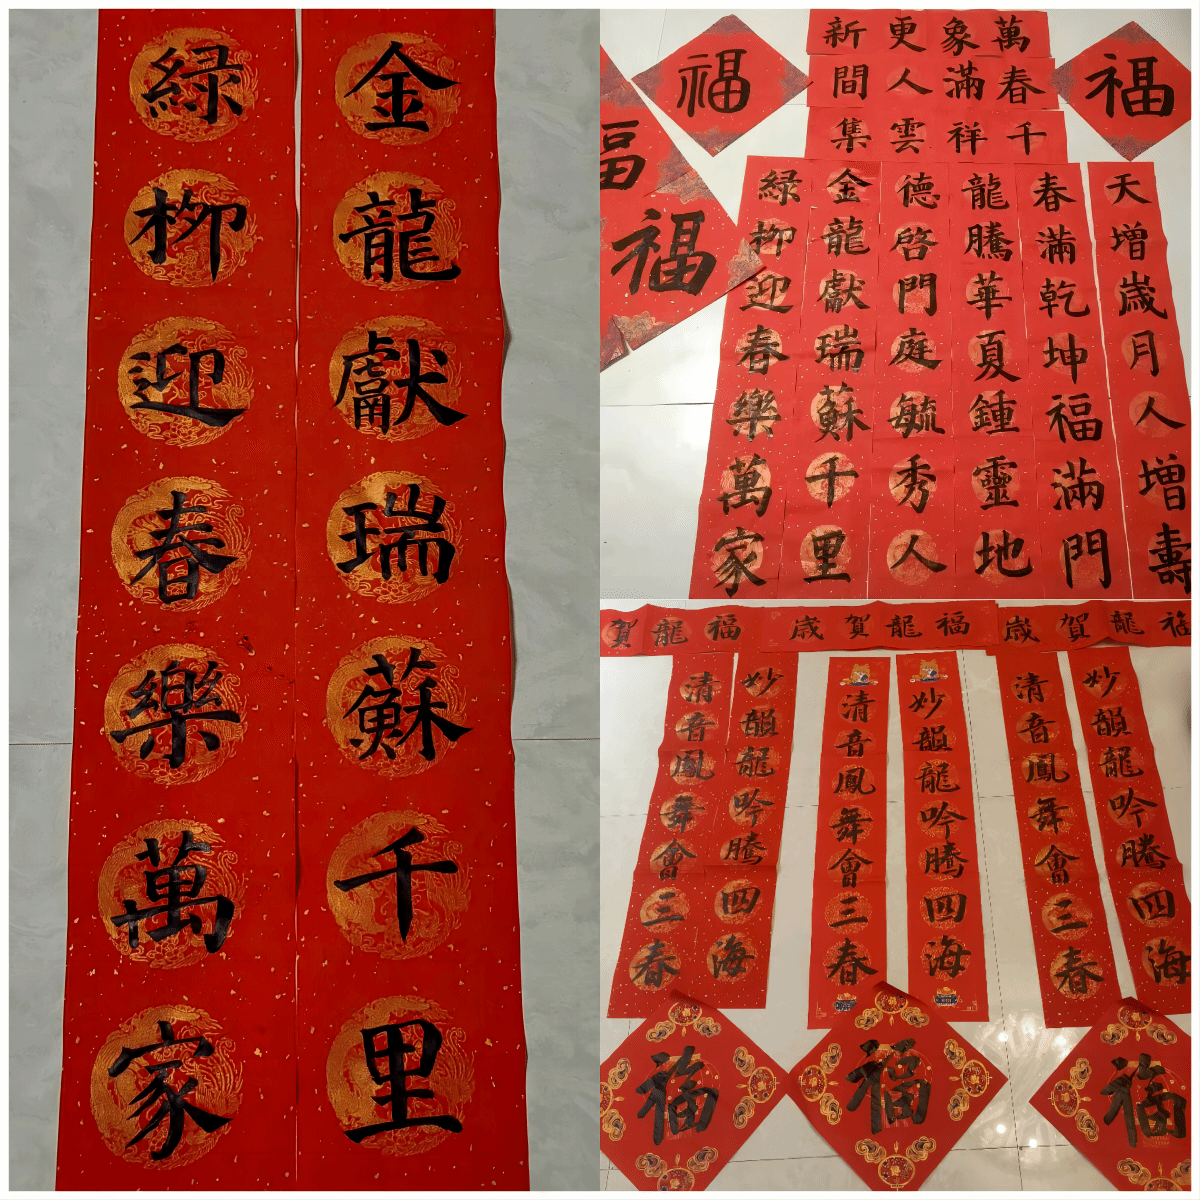 金龍獻瑞蘇千里
綠柳迎春樂萬家
萬象更新
春滿人間
千祥雲集
福
福
福
福
天增歲月人增壽
春滿乾坤福滿門
龍騰華夏鍾靈地
德啓門庭毓秀人
金龍獻瑞蘇千里
綠柳迎春樂萬家
福龍賀歲
福龍賀歲
福龍賀
妙韻龍吟騰四海
清音鳳舞會三春
妙韻龍吟騰四海
清音鳳舞會三春
妙韻龍吟騰四海
清音鳳舞會三春
福
福
福